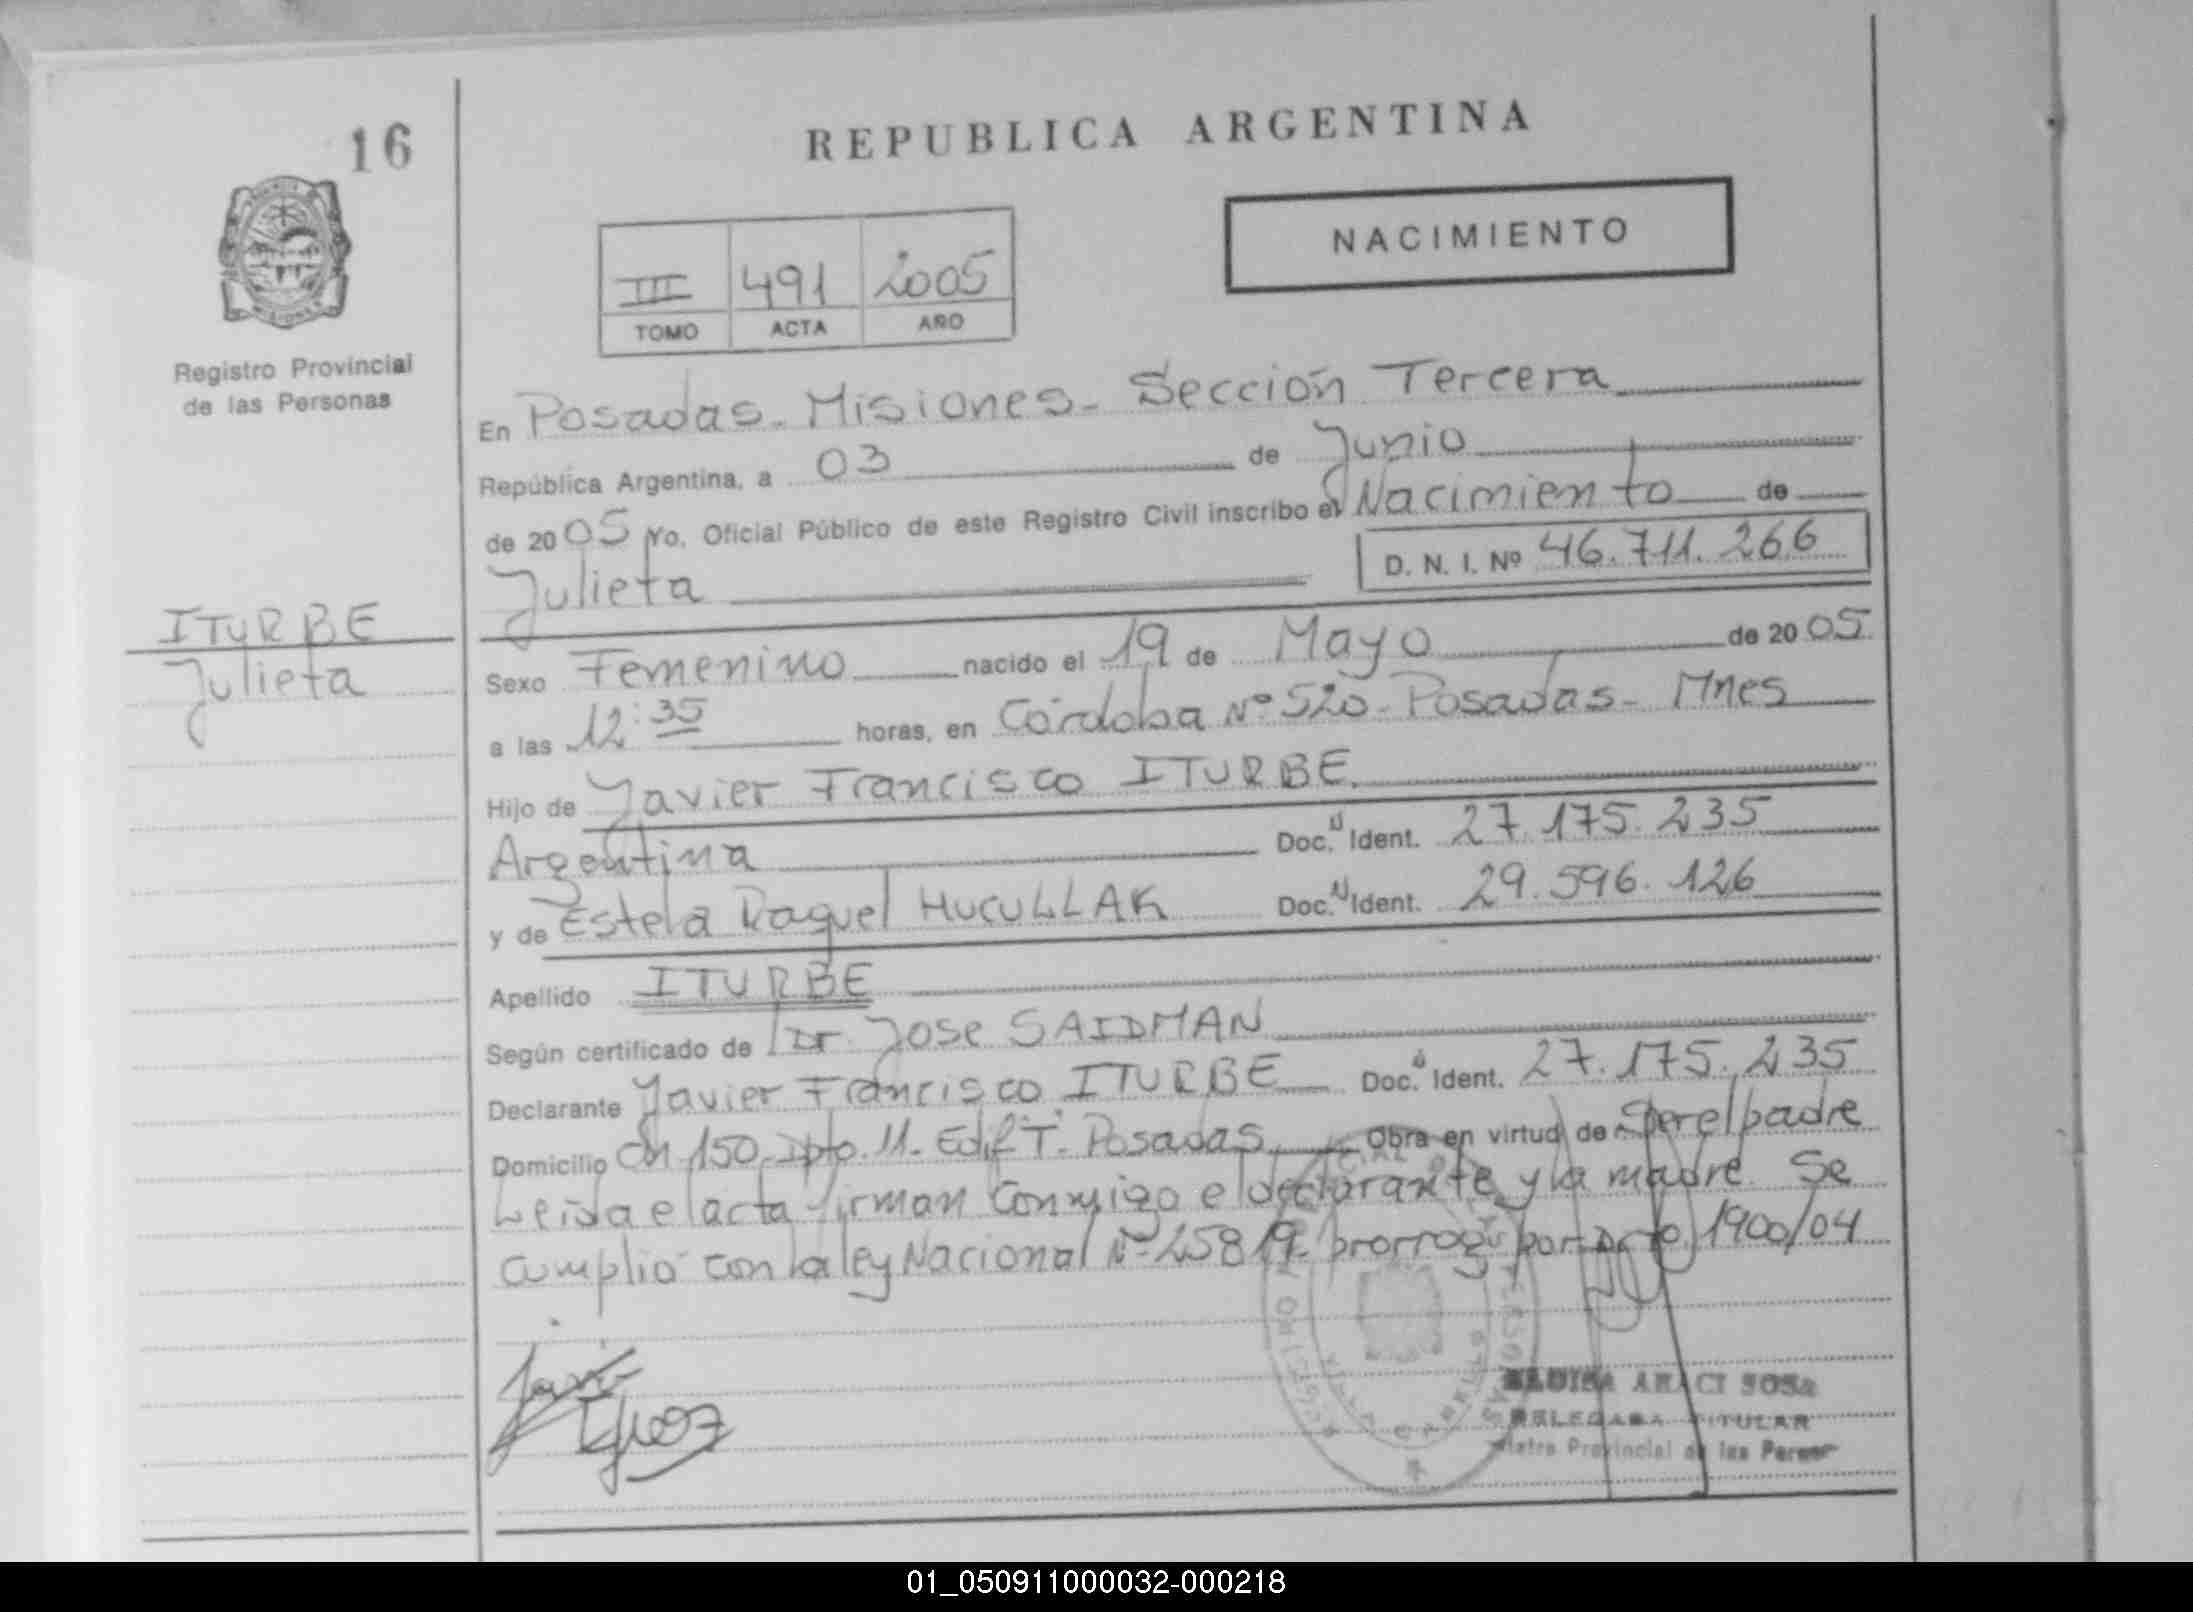 16
REPUBLICA ARGENTINA
NACIMIENTO
III 491 2005
TOMO ACTA AÑO
Registro Provincial
de las Personas
En Posadas - Misiones - Sección Tercera
República Argentina, a 03 de Junio
de 2005 Yo, Oficial Público de este Registro Civil inscribo el Nacimiento de
Julieta D. N. I. Nº 46.711.266
ITURBE
Julieta
Sexo Femenino nacido el 19 de Mayo de 2005
a las 12:35 horas, en Córdoba Nº 520 - Posadas - Mnes
Hijo de Javier Francisco ITURBE.
Argentina Doc. N Ident. 27.175.235
y de Estela Raquel HUCULLAK Doc. N Ident. 29.596.126
Apellido ITURBE
Según certificado de Dr. Jose SAIDMAN
Declarante Javier Francisco ITURBE Doc. Ident. 27.175.235
Domicilio CH 150 - Dpto. 11 - Edif. "T" - Posadas Obra en virtud de Ser el padre
Leida el acta firman conmigo el declarante y la madre. Se
cumplió con la ley Nacional Nº 25819 - prorrog. por Dcto. 1900/04
ELOISA ARACI SOSA
DELEGADA TITULAR
Provincial de las
01_050911000032-000218